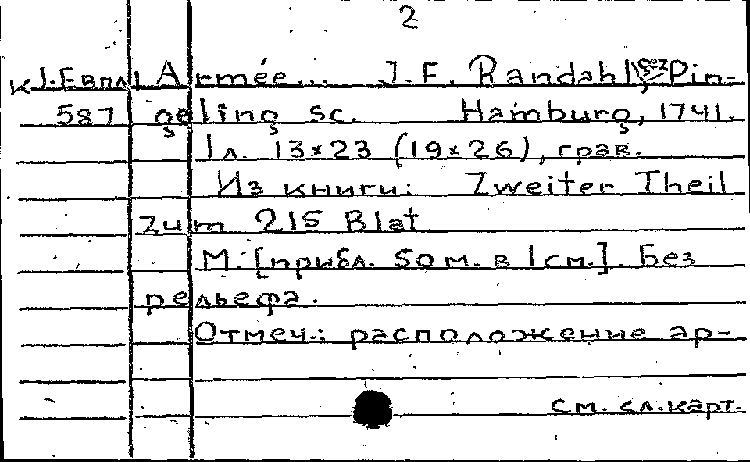 2
К J. Евпл Armée... J. F. Randahl, Pin-
587 geling sc. Hamburg, 1741.
1 л. 13×23 (19×26), грав.
Из книги: Zweiter Theil
zum 215 Blat
М. [прибл. 50 м. в 1 см.]. Без
рельефа.
Отмеч.: расположение ар-
см. сл. карт.